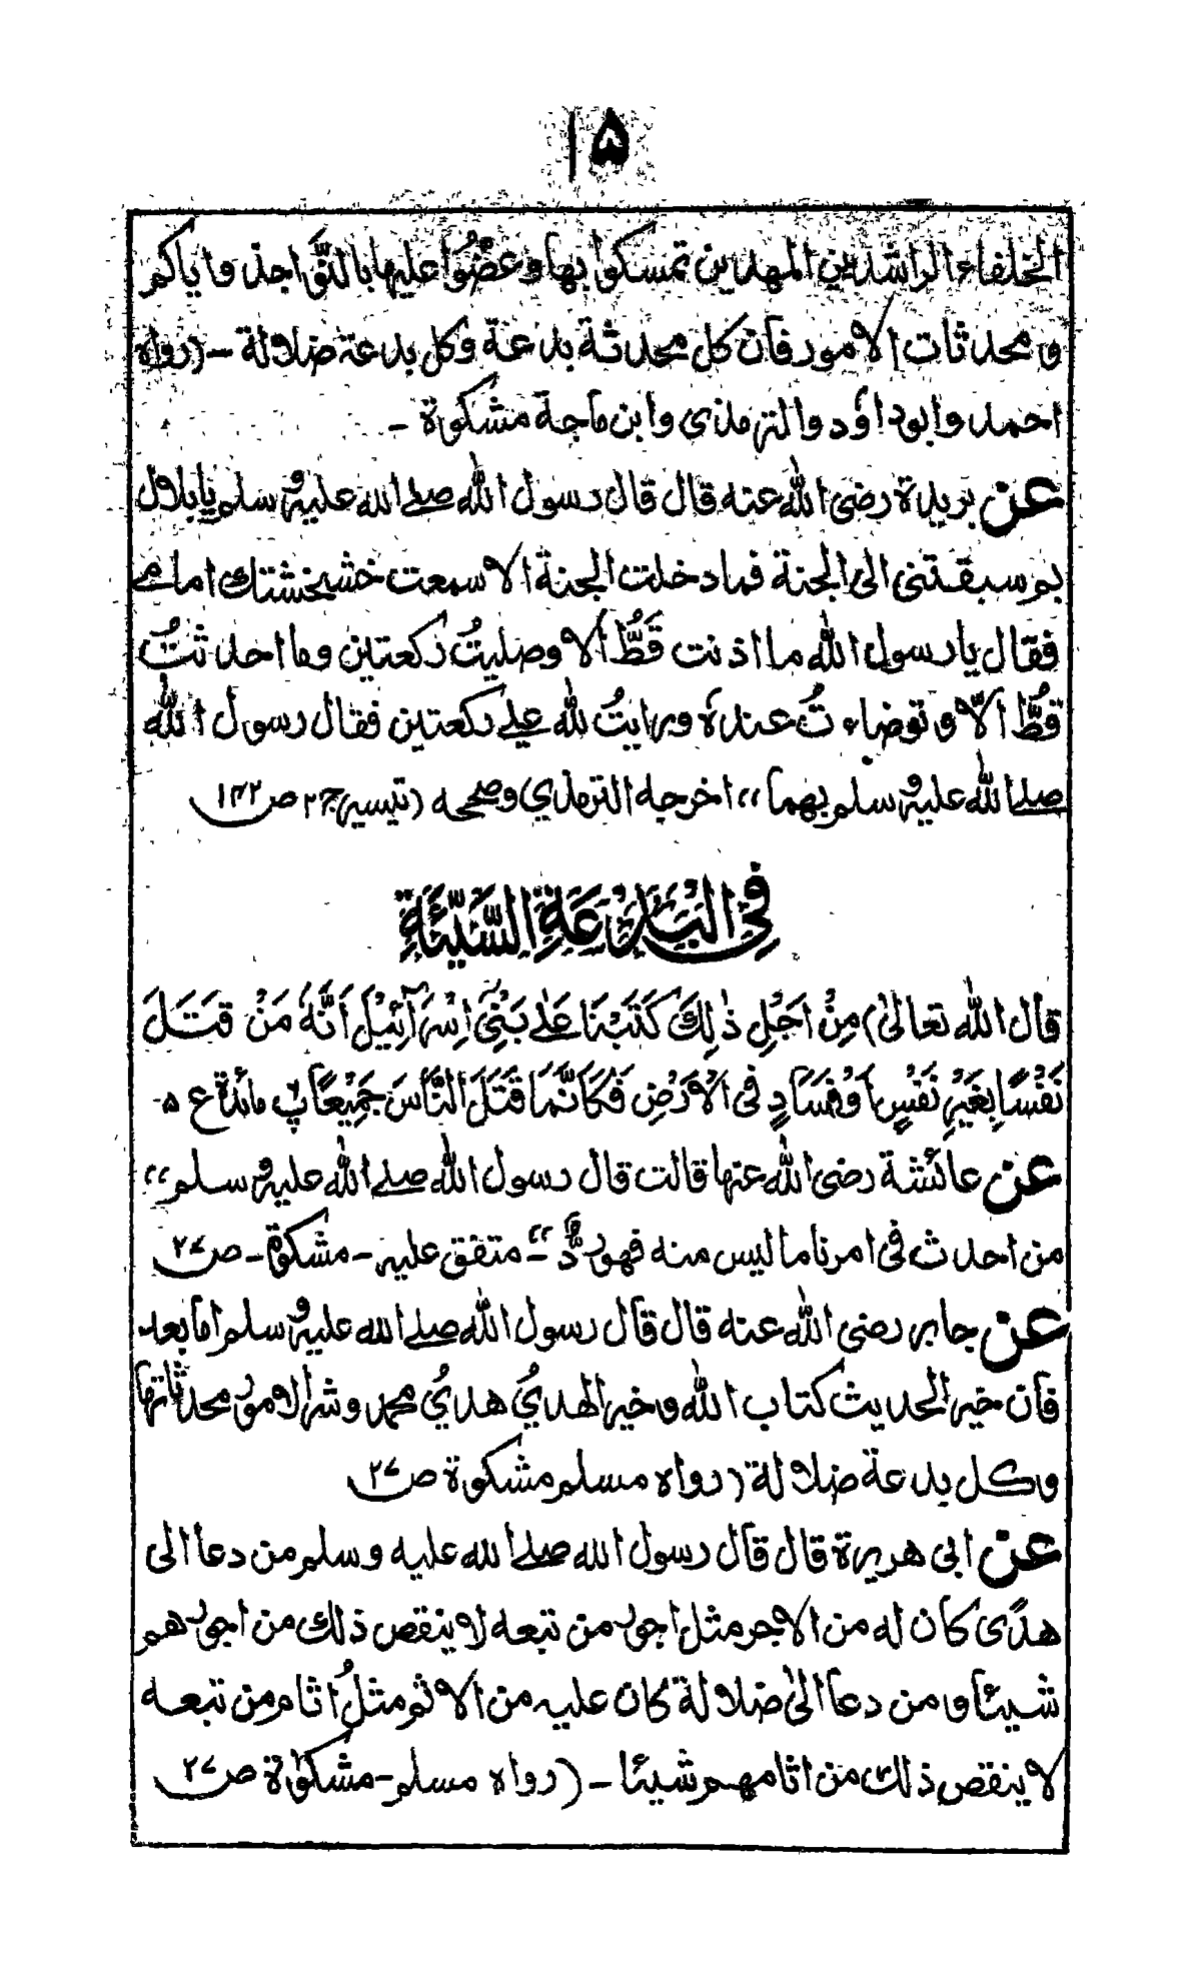 ۱۵
الخلفاء الراشدين المهدين تمسكوا بها وعضُّوا عليها بالنَّواجذ واياكم
ومحدثات الامور فان كل محدثة بدعة وكل بدعة ضلالة - (رواه
احمد وابوداؤد والترمذى وابن ماجة مشكوة -
عن بريدة رضى الله عنه قال قال رسول الله صلے الله عليه وسلم يابلال
بم سبقتنى الى الجنة فمادخلت الجنة الا سمعت خشخشتك امامے
فقال يارسول الله ما اذنت قَطُّ الا وصليتُ ركعتين وما احدثتُ
قطُّ الّا وتوضاءتُ عنده ورايتُ لله علے ركعتين فقال رسول الله
صلے الله عليه وسلم بهما ،، اخرجه الترمذي وصححه (تيسير ج۲ ص۱۴۲
فِى الْبِدْعَةِ السَّيِّئَةِ
قال الله تعالىٰ) مِنْ اَجْلِ ذٰلِكَ كَتَبْنَا عَلٰے بَنِىْٓ اِسْرَآئِيْلَ اَنَّهٗ مَنْ قَتَلَ
نَفْسًا بِغَيْرِ نَفْسٍ اَوْ فَسَادٍ فِى الْاَرْضِ فَكَاَنَّمَا قَتَلَ النَّاسَ جَمِيْعًا پ مائدة ع ۵-
عن عائشة رضى الله عنها قالت قال رسول الله صلے الله عليه وسلم ،،
من احدث فى امرنا ما ليس منه فهو ردٌّ - ،، متفق عليه - مشكوة - ص۲۷
عن جابر رضى الله عنه قال قال رسول الله صلے الله عليه وسلم اما بعد
فان خير الحديث كتاب الله وخير الهديُ هديُ محمد وشر الامور محدثاتها
وكل بدعة ضلالة (رواه مسلم مشكوة ص۲۷
عن ابى هريرة قال قال رسول الله صلے الله عليه وسلم من دعا الى
هدًى كان له من الاجر مثل اجور من تبعه لا ينقص ذلك من اجورهم
شيئا ومن دعا الىٰ ضلالة كان عليه من الاثم مثلُ اثام من تبعه
لا ينقص ذلك من اثامهم شيئا - (رواه مسلم - مشكوٰة ص۲۷